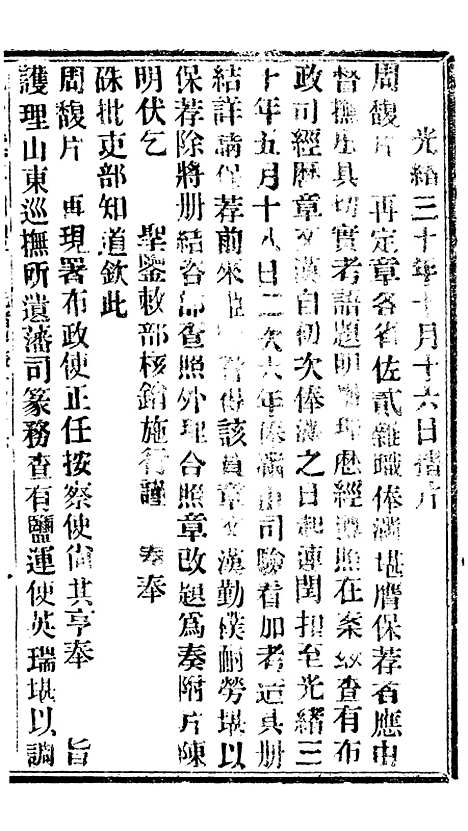 光緒三十年十月十六日諭片
周馥片 再定章各省佐貳雜職俸滿堪膺保荐者應由
督撫出具切實考語題明歷經遵照在案查有布
政司經歷章文漢自初次俸滿之日起連閏扣至光緒三
十年五月十八日二次六年俸滿由司驗看加考造具册
結詳請保荐前來得該員章文漢勤樸耐勞堪以
保荐除將册結咨部查照外理合照章改題爲奏附片陳
明伏乞 聖鑒敕部核銷施行謹 奏奉
硃批吏部知道欽此
周馥片 再現署布政使正任按察使尙其亨奉 旨
護理山東巡撫所遺藩司篆務查有鹽運使英瑞堪以調